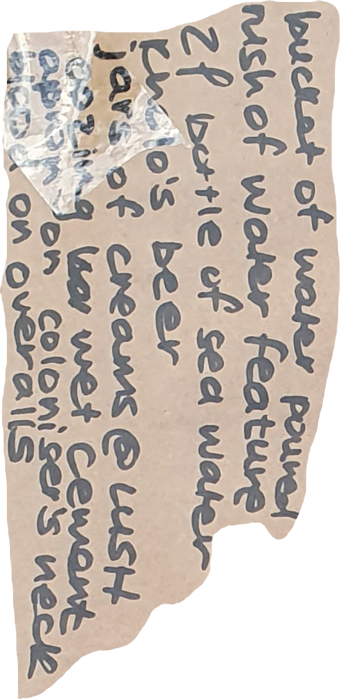 bucket of water poured
rush of water feature
bottle of sea water
beer
jars of creams @ LUSH
wet cement
on coloniser's neck
on overalls